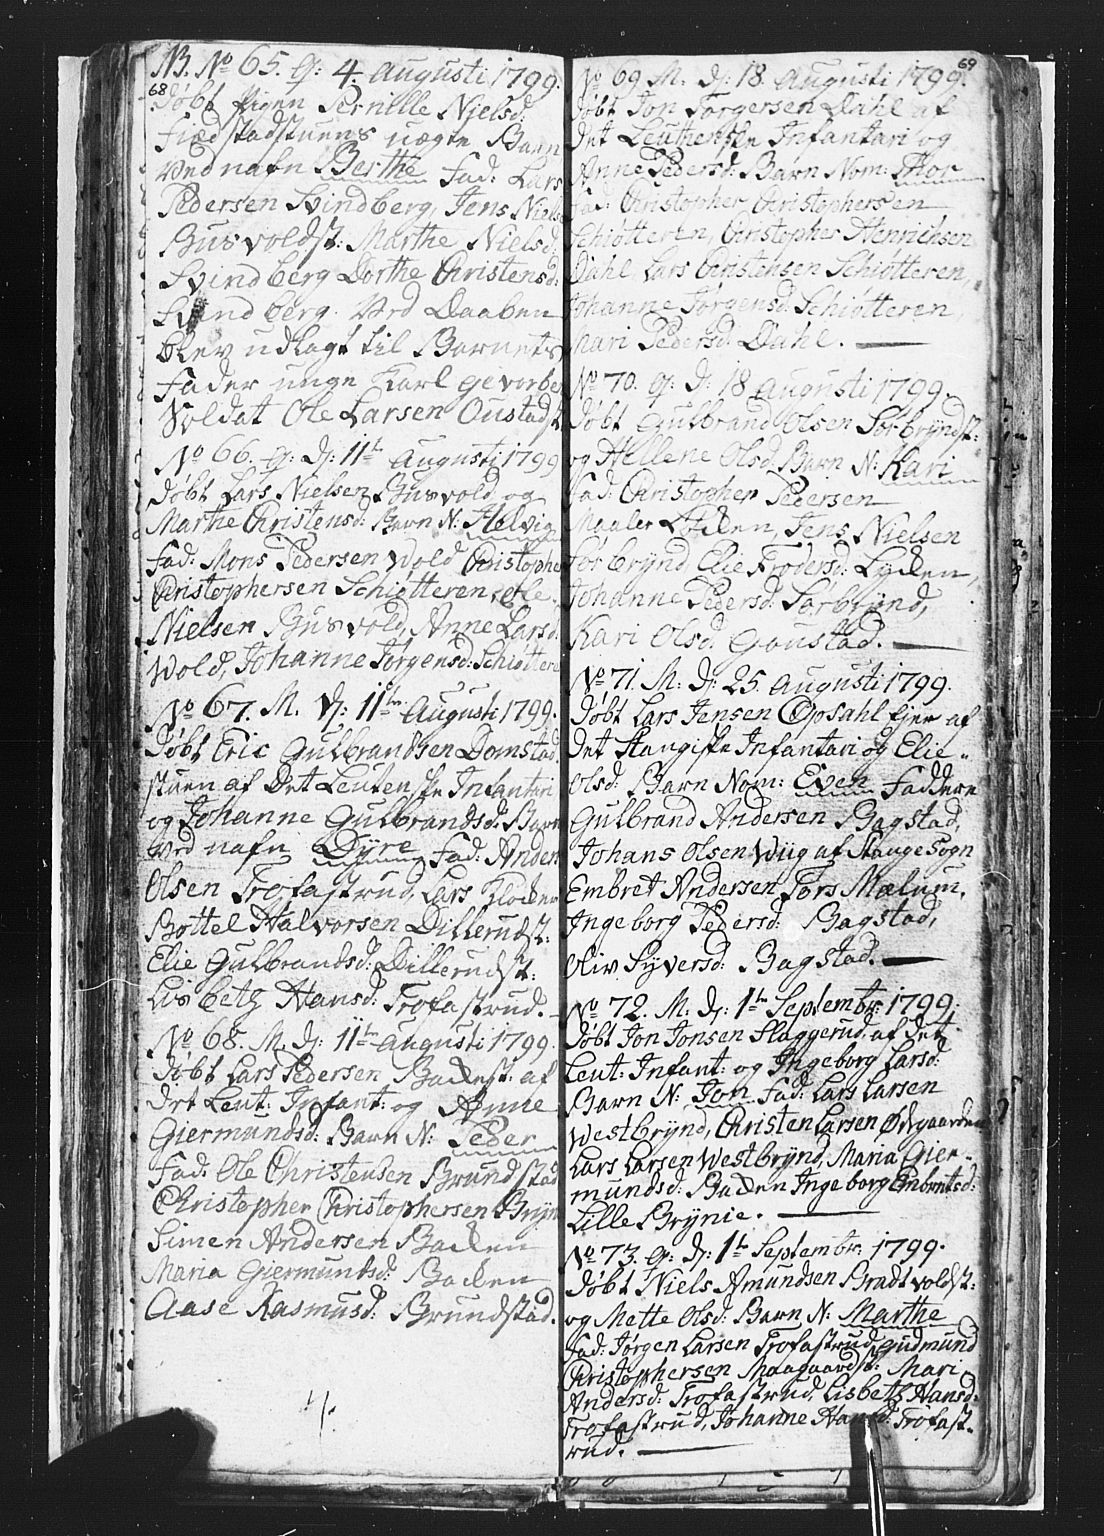 68
NB. No 65. Q: 4. Augusti 1799.
Døbt Pigen Pernille Nielsd:
Fiædstadstuens uægte Barn
Ved nafn Berthe Fad: Lars
Pedersen Svindberg, Jens Niels
Busvoldst: Marthe Nielsd:
Svindberg Dorthe Christensd:
Svindberg. Ved Daaben
blev udlagt til Barnets
Fader unge Karl gevorbe
Soldat Ole Larsen Oustadst
No 66. Q: D: 11te Augusti 1799
Døbt Lars Nielsen Busvold og
Marthe Christensd: Barn N: Helvig
Fad: Mons Pedersen Wold Christopher
Christophersen Schiøtteren, Ole
Nielsen Busvold, Anne Larsd:
Wold, Johanne Jørgensd: Schiøttere
No 67. M. D: 11te Augusti 1799.
Døbt Eric Gulbrandsen Domstad
stuen af Det Leutenske Infantari
og Johanne Gulbrandsd: Barn
Ved nafn Dyre Fad: Anders
Olsen Trofastrud, Lars Kloden
Bottel Halvorsen Dillerudst:
Elie Gulbrandsd: Dillerudst:
Lisbeth Hansd: Trofastrud.
No 68. M. D: 11te Augusti 1799.
Døbt Lars Pedersen Badenst: af
Det Leut: Infant: og Anne
Giermundsd: Barn N: Peder
Fad: Ole Christensen Brundstad
Christopher Christophersen Bryn
Simen Andersen Baden
Maria Giermundsd: Baden
Aase Rasmusd: Brundstad.
69
No 69 M. D: 18. Augusti 1799.
Døbt Jon Torgersen Dahl af
Det Leuthenske Infantari og
Anne Pedersd: Barn Nom: Thor
Fad: Christopher Christophersen
Schiøtteren, Christopher Henrichsen
Dahl, Lars Christensen Schiøtteren,
Johanne Jørgensd: Schiøtteren,
Mari Pedersd: Dahl.
No 70. Q: D: 18 Augusti 1799.
Døbt Gulbrand Olsen Sørbryndst:
og Hellene Olsd: Barn N: Kari
Fad: Christopher Pedersen
Maaler Lyden, Jens Nielsen
Sørbrynd Elie Frodersd: Lyden,
Johanne Pedersd: Sørbrynd,
Kari Olsd: Goustad.
No 71. M: D: 25. Augusti 1799.
Døbt Lars Jensen Opsahl Eier af
det Stangiske Infantari og Elie
Olsd: Barn Nom: Even Faddere
Gulbrand Andersen Bagstad,
Johans Olsen Wiig af Stange Sogn
Embret Andersen Tors Mælum,
Ingeborg Pedersd: Bagstad,
Oliv Syversd: Bagstad.
No 72. M. D: 1te Septembr: 1799.
Døbt Jon Jonsen Slaggerud, af Det
Leut: Infant: og Ingeborg Larsd:
Barn N: Jon Fad: Lars Larsen
Westbrynd, Christen Larsen Ødegaarden
Lars Larsen Westbrynd, Maria Gier-
mundsd: Baden Ingeborg Embretsd:
Lille Brynie.
No 73. Q: D: 1te Septembr: 1799.
Døbt Niels Amundsen Bradtvoldst:
og Mette Olsd: Barn N: Marthe
Fad: Jørgen Larsen Trofastrud, Gudmund
Christophersen Maagaardst: Mari
Andersd: Trofastrud, Lisbeth Hansd:
Trofastrud, Johanne Hansd: Trofast-
rud.